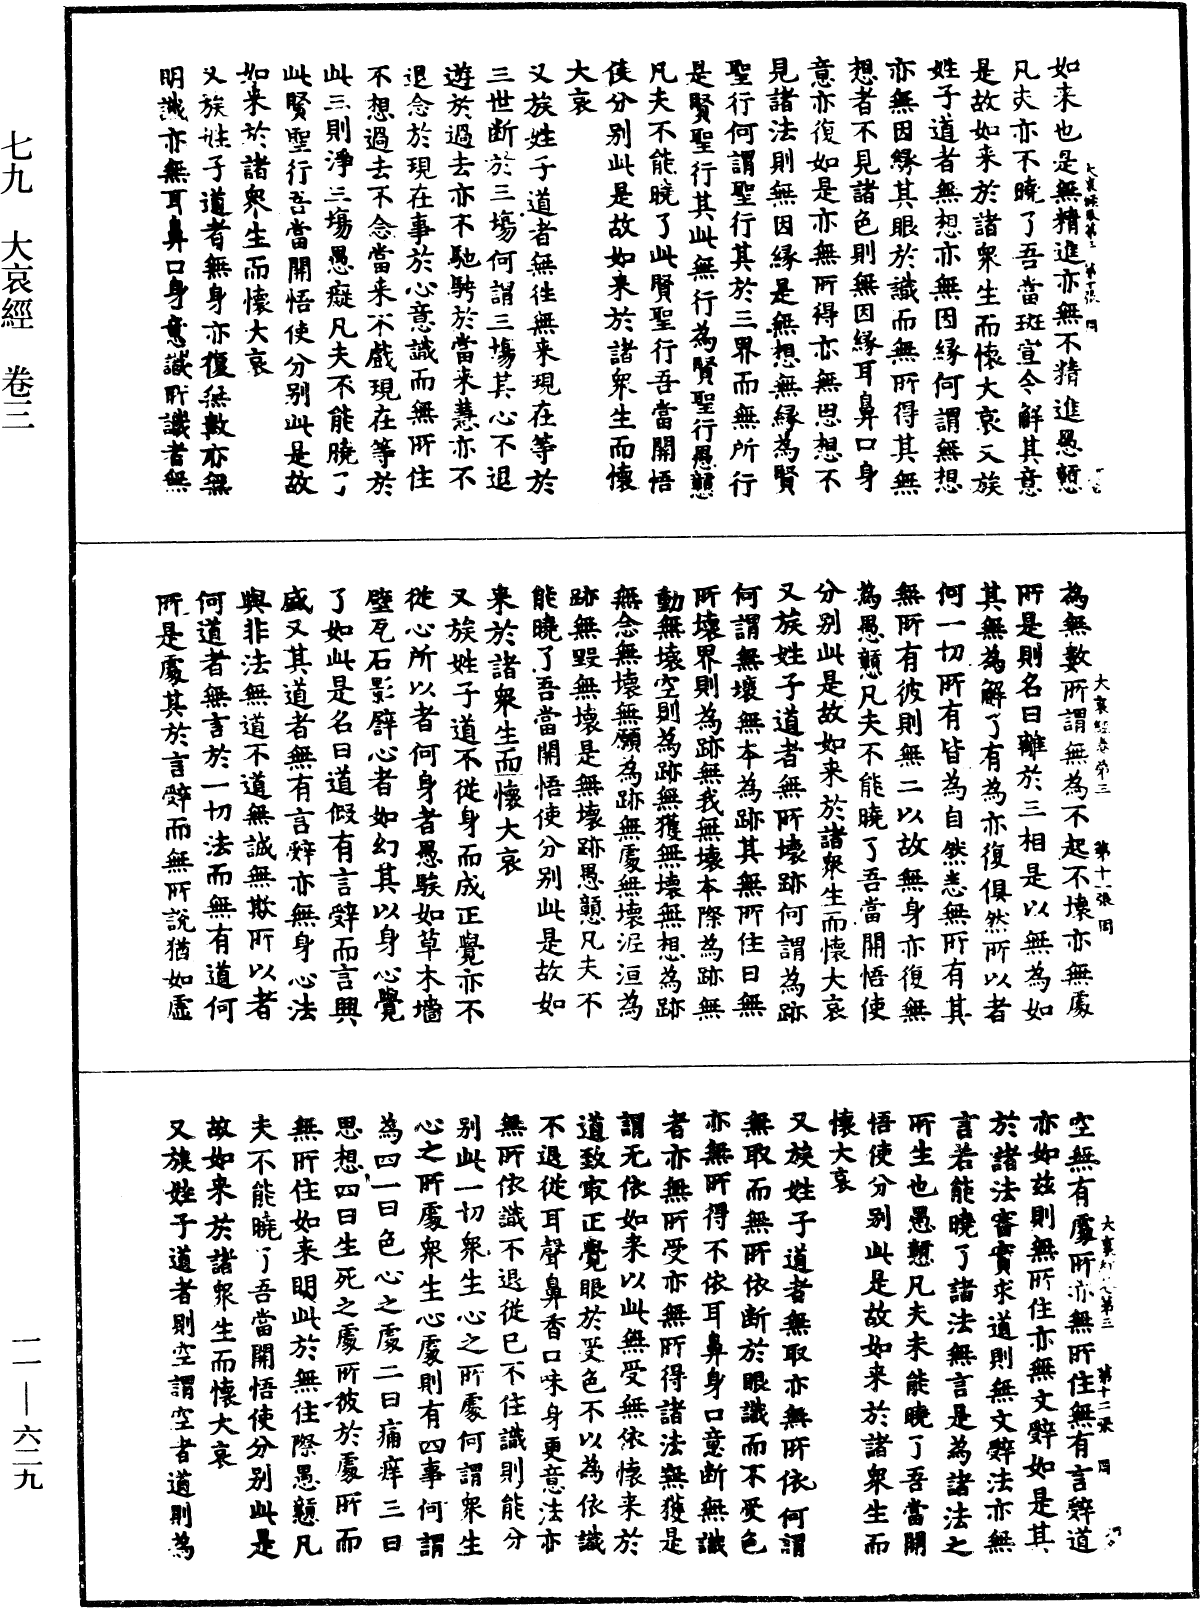 七九　大哀經　卷三
如来也是無精進亦無不精進愚戇
凡夫亦不曉了吾當班宣令解其意
是故如来於諸衆生而懷大哀又族
姓子道者無想亦無因緣何謂無想
亦無因緣其眼於識而無所得其無
想者不見諸色則無因緣耳鼻口身
意亦復如是亦無所得亦無思想不
見諸法則無因緣是無想無緣為賢
聖行何謂聖行其於三界而無所行
是賢聖行其此無行為賢聖行愚戇
凡夫不能曉了此賢聖行吾當開悟
使分別此是故如来於諸衆生而懷
大哀
又族姓子道者無往無来現在等於
三世断於三塲何謂三塲其心不退
遊於過去亦不馳騁於當来慧亦不
退念於現在事於心意識而無所住
不想過去不念當来不戲現在等於
此三則淨三塲愚癡凡夫不能曉了
此賢聖行吾當開悟使分別此是故
如来於諸衆生而懷大哀
又族姓子道者無身亦復無數亦無
明識亦無耳鼻口身意識所識者無
大哀經卷第三　第十一張　罔
為無數所謂無為不起不壞亦無處
所是則名曰離於三相是以無為如
其無為解了有為亦復俱然所以者
何一切所有皆為自然悉無所有其
無所有彼則無二以故無身亦復無
為愚戇凡夫不能曉了吾當開悟使
分別此是故如来於諸衆生而懷大哀
又族姓子道者無所壞跡何謂為跡
何謂無壞無本為跡其無所住曰無
所壞界則為跡無我無壞本際為跡無
動無壞空則為跡無獲無壞無想為跡
無念無壞無願為跡無處無壞泥洹為
跡無毀無壞是無壞跡愚戇凡夫不
能曉了吾當開悟使分別此是故如
来於諸衆生而懷大哀
又族姓子道不從身而成正覺亦不
從心所以者何身者愚騃如草木墻
壁瓦石影辟心者如幻其以身心覺
了如此是名曰道假有言辭而言興
盛又其道者無有言辭亦無身心法
與非法無道不道無誠無欺所以者
何道者無言於一切法而無有道何
所是處其於言辭而無所說猶如虛
大哀經卷第三　第十二張　罔
空無有處所亦無所住無有言辭道
亦如茲則無所住亦無文辭如是其
於諸法審實求道則無文辭法亦無
言若能曉了諸法無言是為諸法之
所生也愚戇凡夫未能曉了吾當開
悟使分別此是故如来於諸衆生而
懷大哀
又族姓子道者無取亦無所依何謂
無取而無所依斷於眼識而不受色
亦無所得不依耳鼻身口意斷無識
者亦無所受亦無所得諸法無獲是
謂无依如来以此無受無依懷来於
道致㝡正覺眼於受色不以為依識
不退從耳聲鼻香口味身更意法亦
無所依識不退從已不住識則能分
別此一切衆生心之所處何謂衆生
心之所處衆生心處則有四事何謂
為四一曰色心之處二曰痛痒三曰
思想四曰生死之處所彼於處所而
無所住如来明此於無住際愚戇凡
夫不能曉了吾當開悟使分別此是
故如来於諸衆生而懷大哀
又族姓子道者則空謂空者道則為
一一—六二九